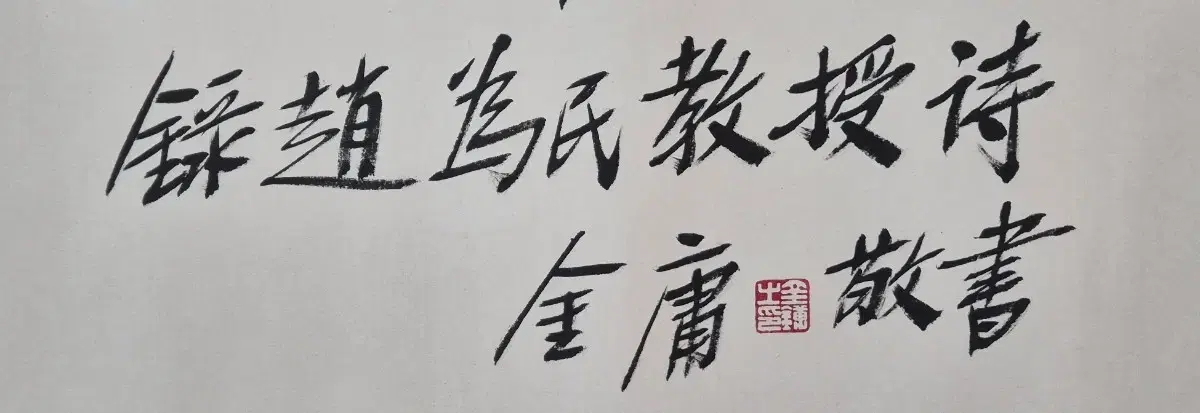 錄趙為民教授诗
金庸 敬書